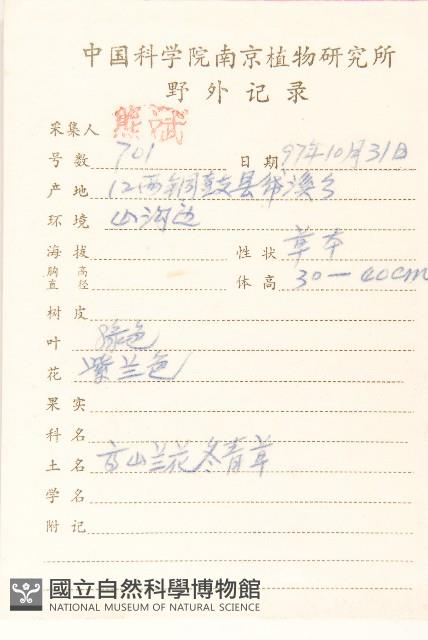 中国科学院南京植物研究所
野外记录
采集人 熊斌
号数 701 日期 97年10月31日
产地 江西铜鼓县带溪乡
环境 山沟边
海拔 性状 草本
胸高直径 体高 30—40cm
树皮
叶 绿色
花 紫兰色
果实
科名
土名 高山兰花冬青草
学名
附记
國立自然科學博物館
NATIONAL MUSEUM OF NATURAL SCIENCE